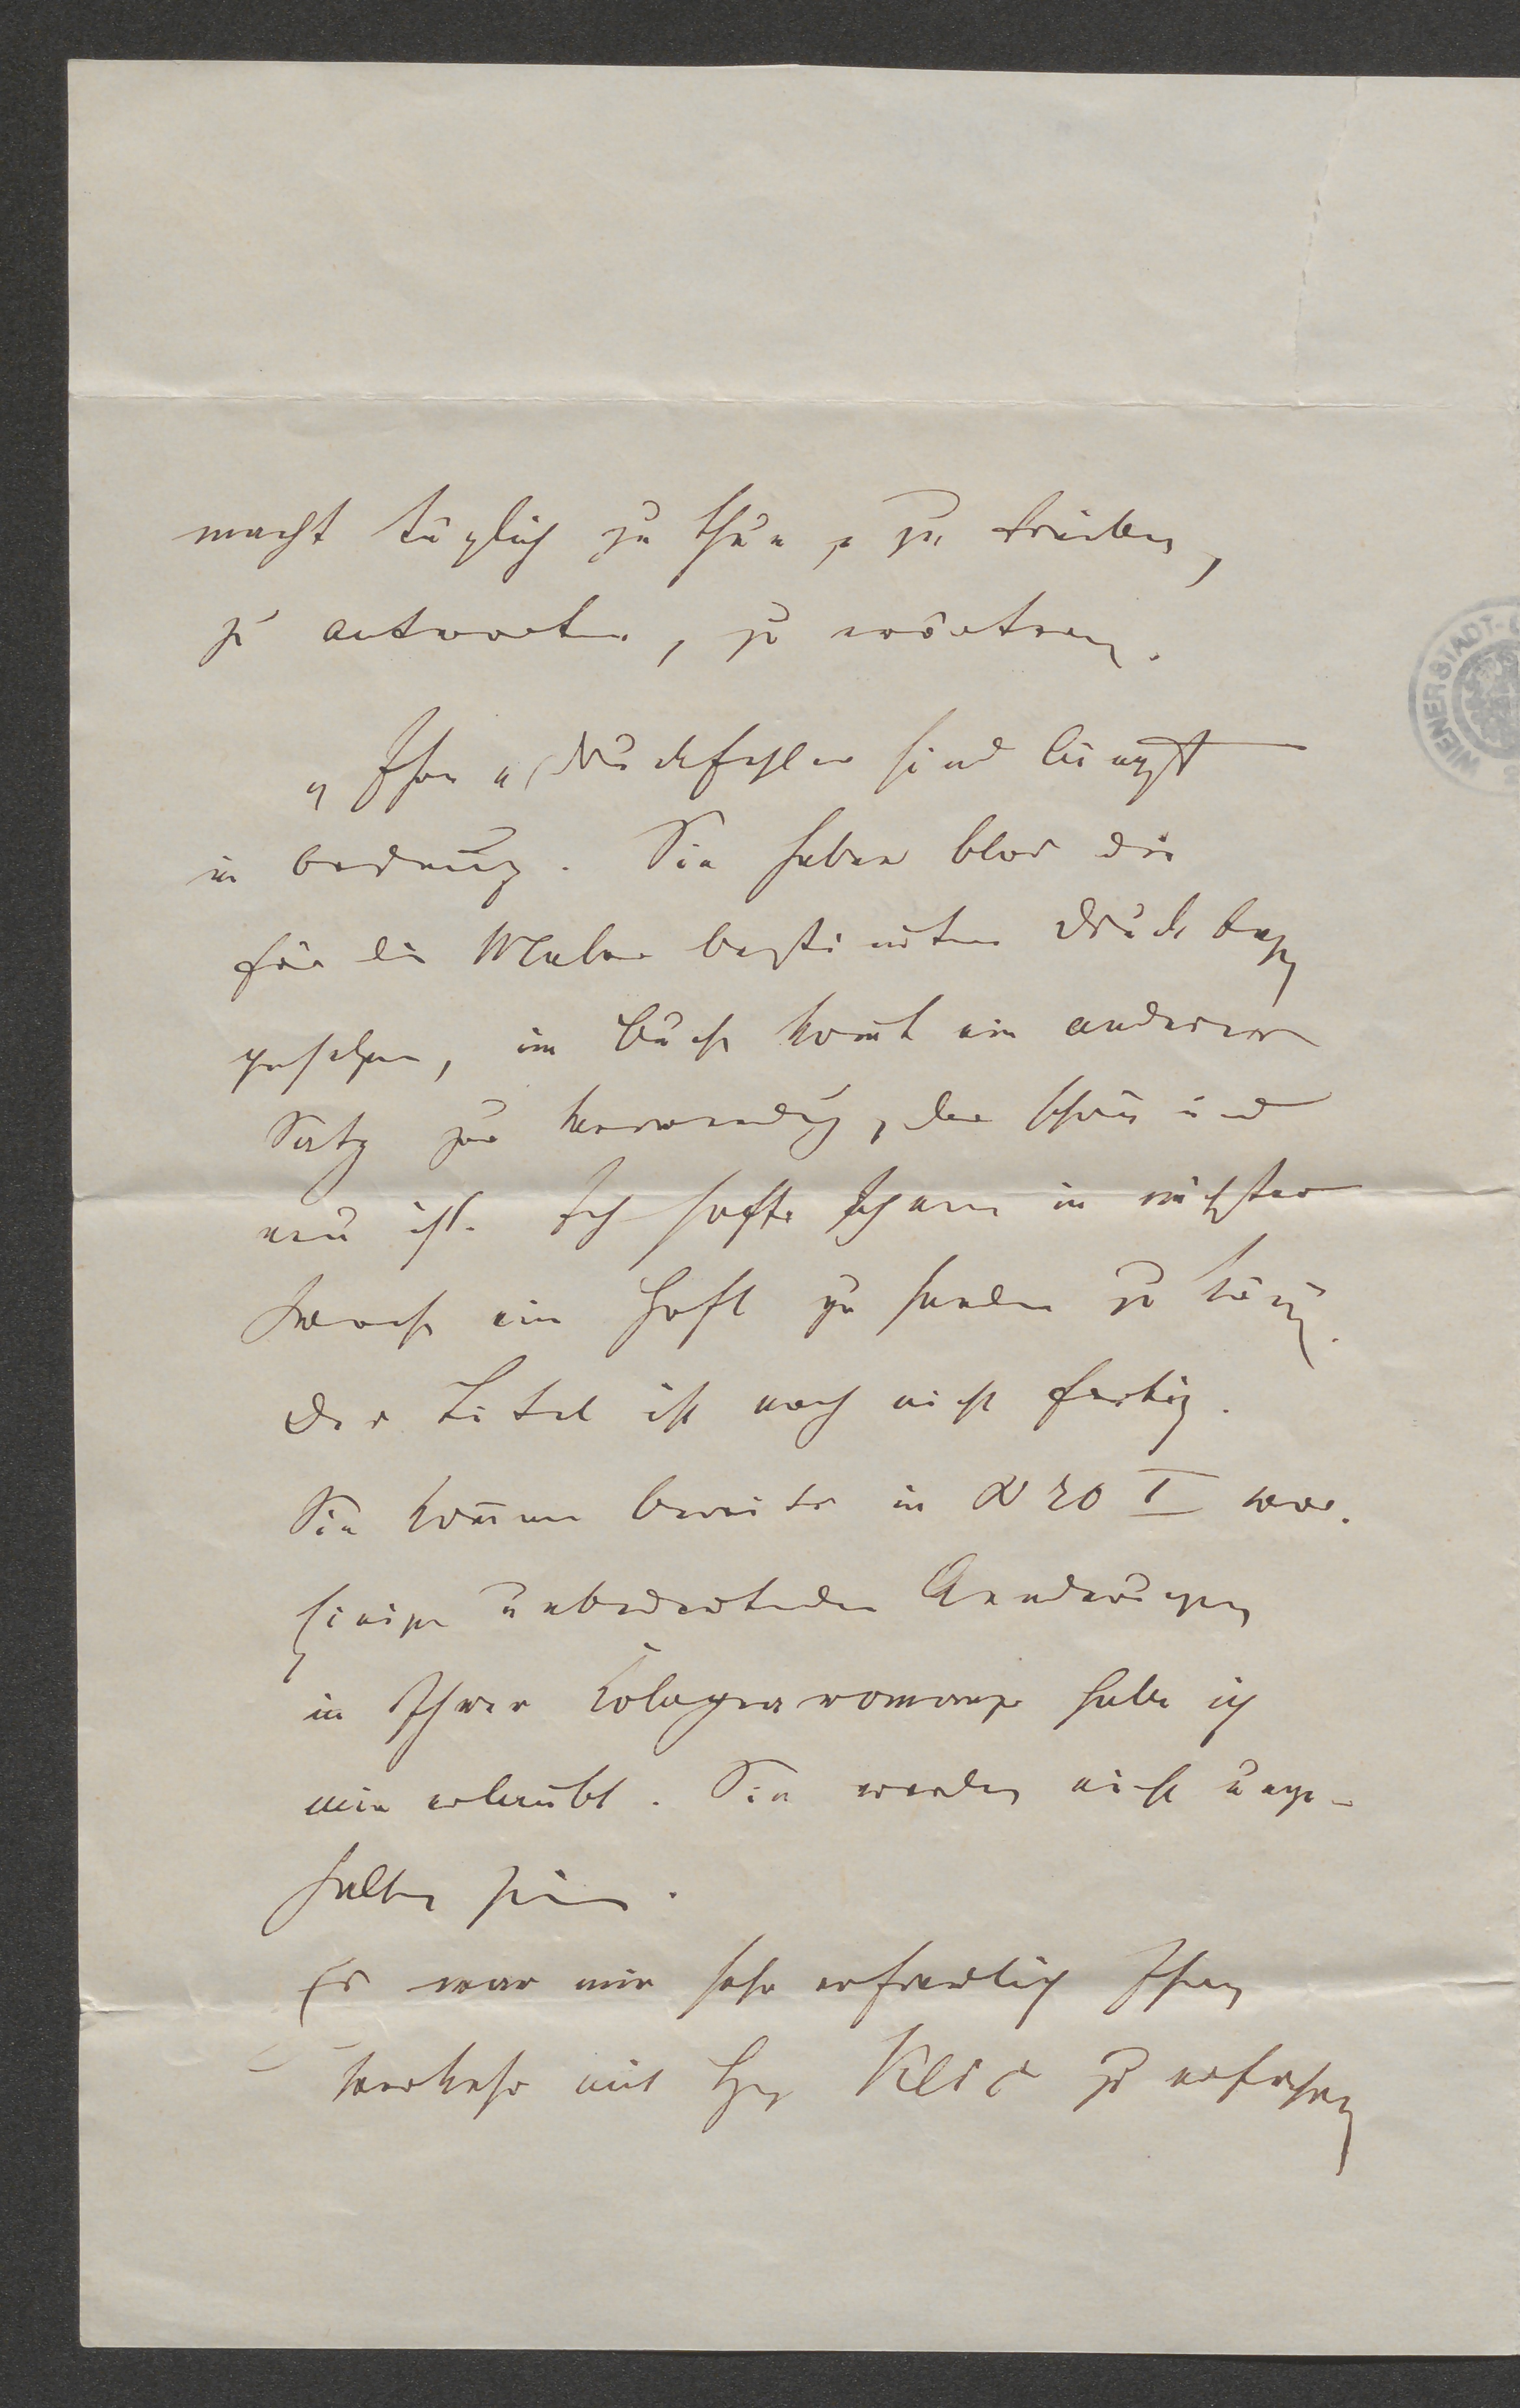 macht täglich zu thun, zu treiben,
zu antworten, zu erörtern.
„Ihre „Druckfehler sind längst
in Ordnung. Sie haben blos die
für die Maler bestimten Druckbog
gesehen, im Buch komt ein anderer
Satz zur Verwendung, der schön und
neu ist. Ich hoffe Ihnen in nächster
Woche ein Heft zu senden zu könn.
Der Titel ist noch nicht fertig.
Sie komen bereits in No 20 I vor.
Einige unbedeutende Aenderungen
in Ihrer habe ich
mir erlaubt. Sie werden nicht unge-
halten sein.
Es war mir sehr erfreulich Ihren
Verkehr mit Hrn Klič zu erfahren
WIENER STADT-